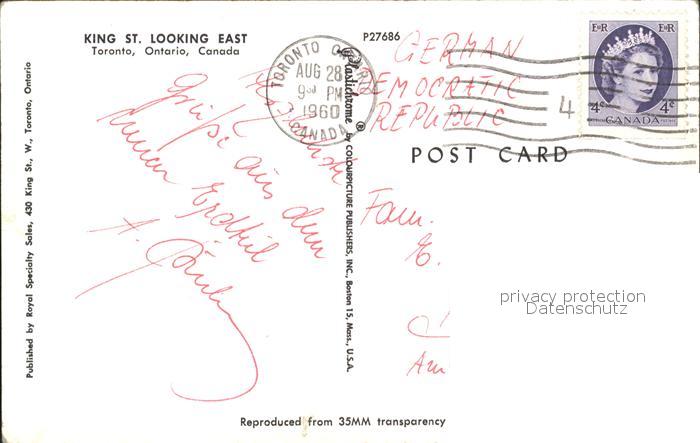 KING ST. LOOKING EAST
Toronto, Ontario, Canada
P27686
TORONTO
AUG 28
9 PM
1960
CANADA
E II R
E II R
4¢
4¢
CANADA
4
GERMAN
DEMOCRATIC
REPUBLIC
POST CARD
Herzlichste
Grüße aus dem
Erdteil
A.
Fam.
E.
Am
privacy protection
Datenschutz
Plastichrome ® by COLOURPICTURE PUBLISHERS, INC., Boston 15, Mass., U.S.A.
Published by Royal Specialty Sales, 430 King St., W., Toronto, Ontario
Reproduced from 35MM transparency